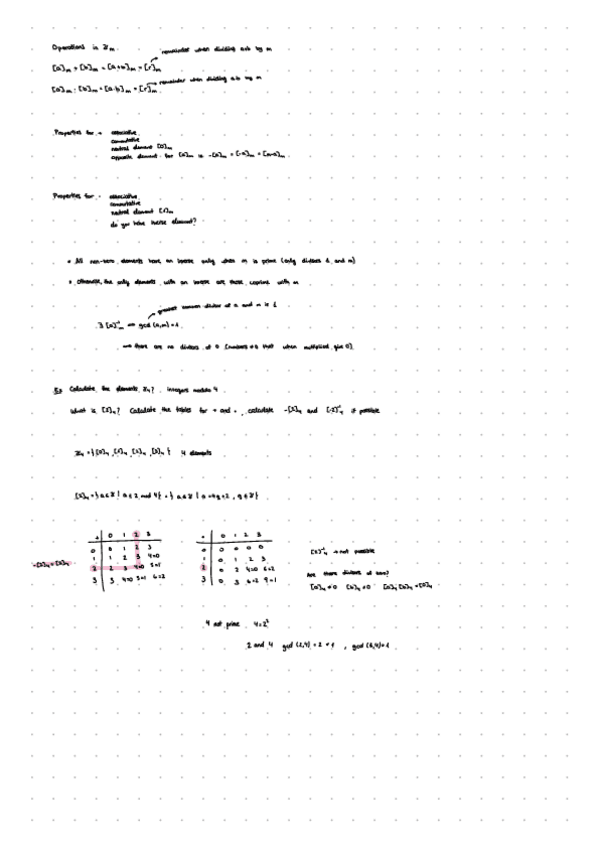 Operations in ℤm
remainder when dividing a+b by m
[a]m + [b]m = [a+b]m = [r]m
remainder when dividing a·b by m
[a]m · [b]m = [a·b]m = [r]m
Properties for + associative
commutative
neutral element [0]m
opposite element for [a]m is -[a]m = [-a]m = [m-a]m
Properties for · associative
commutative
neutral element [1]m
do you have inverse element?
• All non-zero elements have an inverse only when m is prime (only divisors 1 and m)
• Otherwise, the only elements with an inverse are those coprime with m
greatest common divisor of a and m is 1
∃ [a]⁻¹m ⟺ gcd(a,m)=1
⟹ there are no divisors of 0 (numbers ≠0 that when multiplied give 0)
Ex Calculate the elements ℤ4? integers modulo 4
What is [2]4? Calculate the tables for + and ·, calculate -[2]4 and [2]⁻¹4 if possible
ℤ4 = { [0]4, [1]4, [2]4, [3]4 } 4 elements
[2]4 = { a∈ℤ | a≡2 mod 4 } = { a∈ℤ | a=4q+2, q∈ℤ }
+ 0 1 2 3
0 0 1 2 3
1 1 2 3 4=0
2 2 3 4=0 5=1
3 3 4=0 5=1 6=2
-[2]4=[2]4
· 0 1 2 3
0 0 0 0 0
1 0 1 2 3
2 0 2 4=0 6=2
3 0 3 6=2 9=1
[2]⁻¹4 → not possible
Are there divisors of zero?
[a]4≠0 [b]4≠0 [a]4[b]4=[0]4
4 not prime 4=2²
2 and 4 gcd(2,4)=2≠1